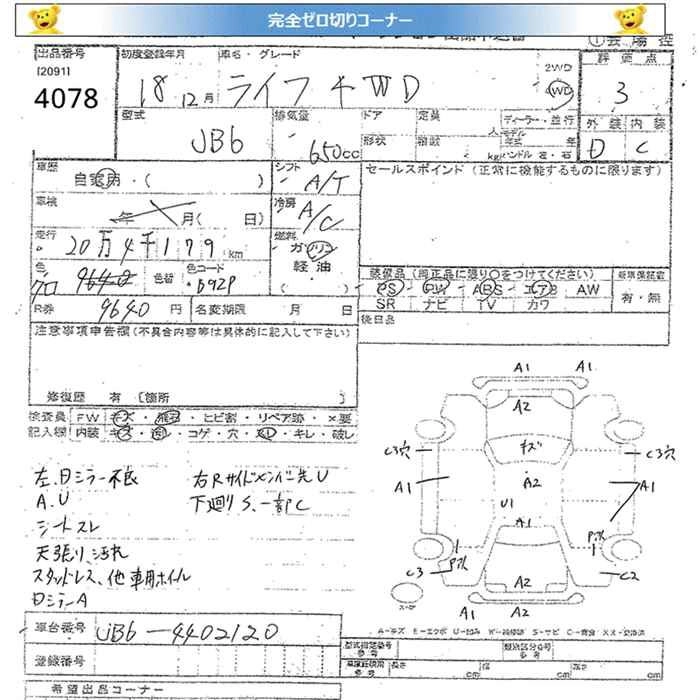 完全ゼロ切りコーナー
出品番号
[2091]
4078
初度登録年月
18 12月
車名・グレード
ライフ 4WD
2WD
4WD
①会場控
評価点
3
外装 内装
D C
型式
JB6
排気量
650cc
ドア
形状
定員
人
積数
kg
ディーラー・並行
モデル
年式 年
ハンドル 左・右
車歴
自家用・( )
シフト
A/T
セールスポイント (正常に機能するものに限ります)
車検
年 月( 日)
冷房
A/C
走行
20万4千179km
燃料
ガソリン
軽油
( )
色
クロ
9640
色替
色コード
B92P
装備品 (純正品に限り○をつけてください)
PS・PW・ABS・エアB AW
SR ナビ TV カワ
新車保証書
有・無
R券
9640円
名変期限 月 日
後日品
注意事項申告欄(不具合内容等は具体的に記入して下さい)
修復歴 有 [箇所 ]
検査員 FW キズ・飛石・ヒビ割・リペア跡・×要
記入欄 内装 キズ・ コゲ・穴・ ・キレ・破レ
左、Dミラー不良
A.U
シートスレ
天張リ、汚れ
スタッドレス、他車用ホイル
Dミラー A
右RサイドメンバーU
下廻りS、一部C
A1
A1
A2
C3穴
キズ
C3穴
A1
A2
A1
U1
A1
C3
C2
A2
A1
A2
スペア
A-キズ E-エクボ U-凹み W-補修跡 S-サビ C-腐食 XX-交換済
車台番号
JB6-4402120
登録番号
型式指定番号
類別区分番号
長さ cm
幅 cm
高さ cm
希望出品コーナー